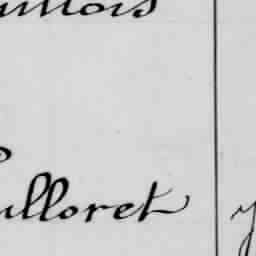 uillois
ulloret
y